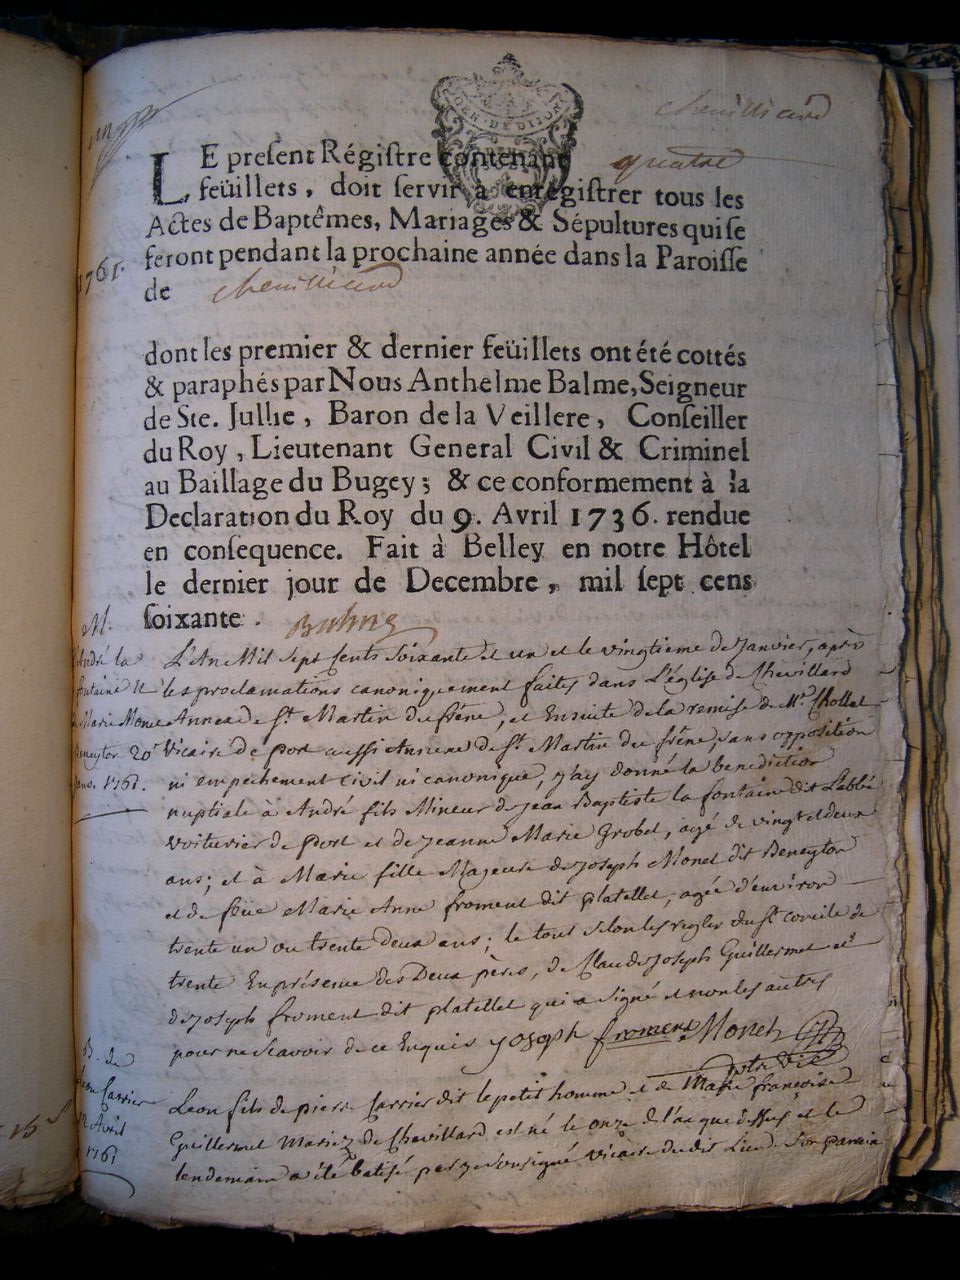 chevillard
GEN. DE DIJON
LE present Régistre contenant quatre
feüillets, doit servir à enregistrer tous les
Actes de Baptêmes, Mariages & Sépultures qui se
feront pendant la prochaine année dans la Paroisse
1761.
de chevillard
dont les premier & dernier feüillets ont été cottés
& paraphés par Nous Anthelme Balme, Seigneur
de Ste. Jullie, Baron de la Veillere, Conseiller
du Roy, Lieutenant General Civil & Criminel
au Baillage du Bugey; & ce conformement à la
Declaration du Roy du 9. Avril 1736. rendue
en consequence. Fait à Belley en notre Hôtel
le dernier jour de Decembre, mil sept cens
soixante.
M.
André la
fontaine et
Marie Monet
Beneyton 20e
Janv. 1761.
L'An Mil Sept Cents Soixante et un et le vingtieme de Janvier, après
les proclamations canoniquement faites dans L'église de Chevillard
Annexe de St. Martin du frêne, et Ensuite de la remise de Mr. Chollet
Vicaire de port aussi Annexe de St. Martin du frêne, sans opposition
ni empechement Civil ni canonique, j'ay donné la benediction
nuptiale à André fils Mineur de Jean Baptiste la fontaine dit Labbé
voiturier de port et de Jeanne Marie Grobet, agé de vingt et deux
ans; et à Marie fille Majeure de Joseph Monet dit Beneyton
et de feüe Marie Anne froment dit platellet, agée d'environ
trente un ou trente deux ans; le tout selon les regles du St concile de
trente En présence des Deux pères, de Claude Joseph Guillermet et
de Joseph froment dit platellet qui a signé et non les autres
pour ne Scavoir de ce Enquis Joseph froment Monet
ptre Vic
B. de
Leon Carrier
12 Avril
1761
Leon fils de pierre Carrier dit le petit homme et de Marie françoise
Guillermet Mariez de Chevillard est né le onze de l'an que dessus et le
lendemain a été batisé par je soussigné vicaire dudit Lieu. Son parrain